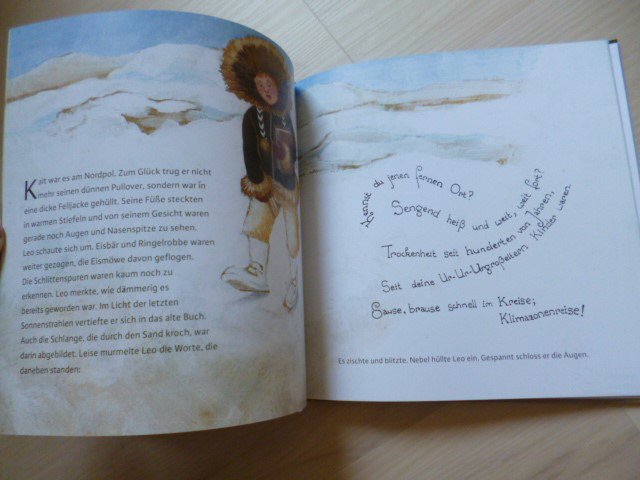 Kalt war es am Nordpol. Zum Glück trug er nicht
mehr seinen dünnen Pullover, sondern war in
eine dicke Felljacke gehüllt. Seine Füße steckten
in warmen Stiefeln und von seinem Gesicht waren
gerade noch Augen und Nasenspitze zu sehen.
Leo schaute sich um. Eisbär und Ringelrobbe waren
weiter gezogen, die Eismöwe davon geflogen.
Die Schlittenspuren waren kaum noch zu
erkennen. Leo merkte, wie dämmerig es
bereits geworden war. Im Licht der letzten
Sonnenstrahlen vertiefte er sich in das alte Buch.
Auch die Schlange, die durch den Sand kroch, war
darin abgebildet. Leise murmelte Leo die Worte, die
daneben standen:
Kennst du jenen fernen Ort?
Sengend heiß und weit, weit fort?
Trockenheit seit hunderten von Jahren,
Seit deine Ur-Ur-Urgroßeltern Kinder waren.
Sause, brause schnell im Kreise;
Klimazonenreise!
Es zischte und blitzte. Nebel hüllte Leo ein. Gespannt schloss er die Augen.